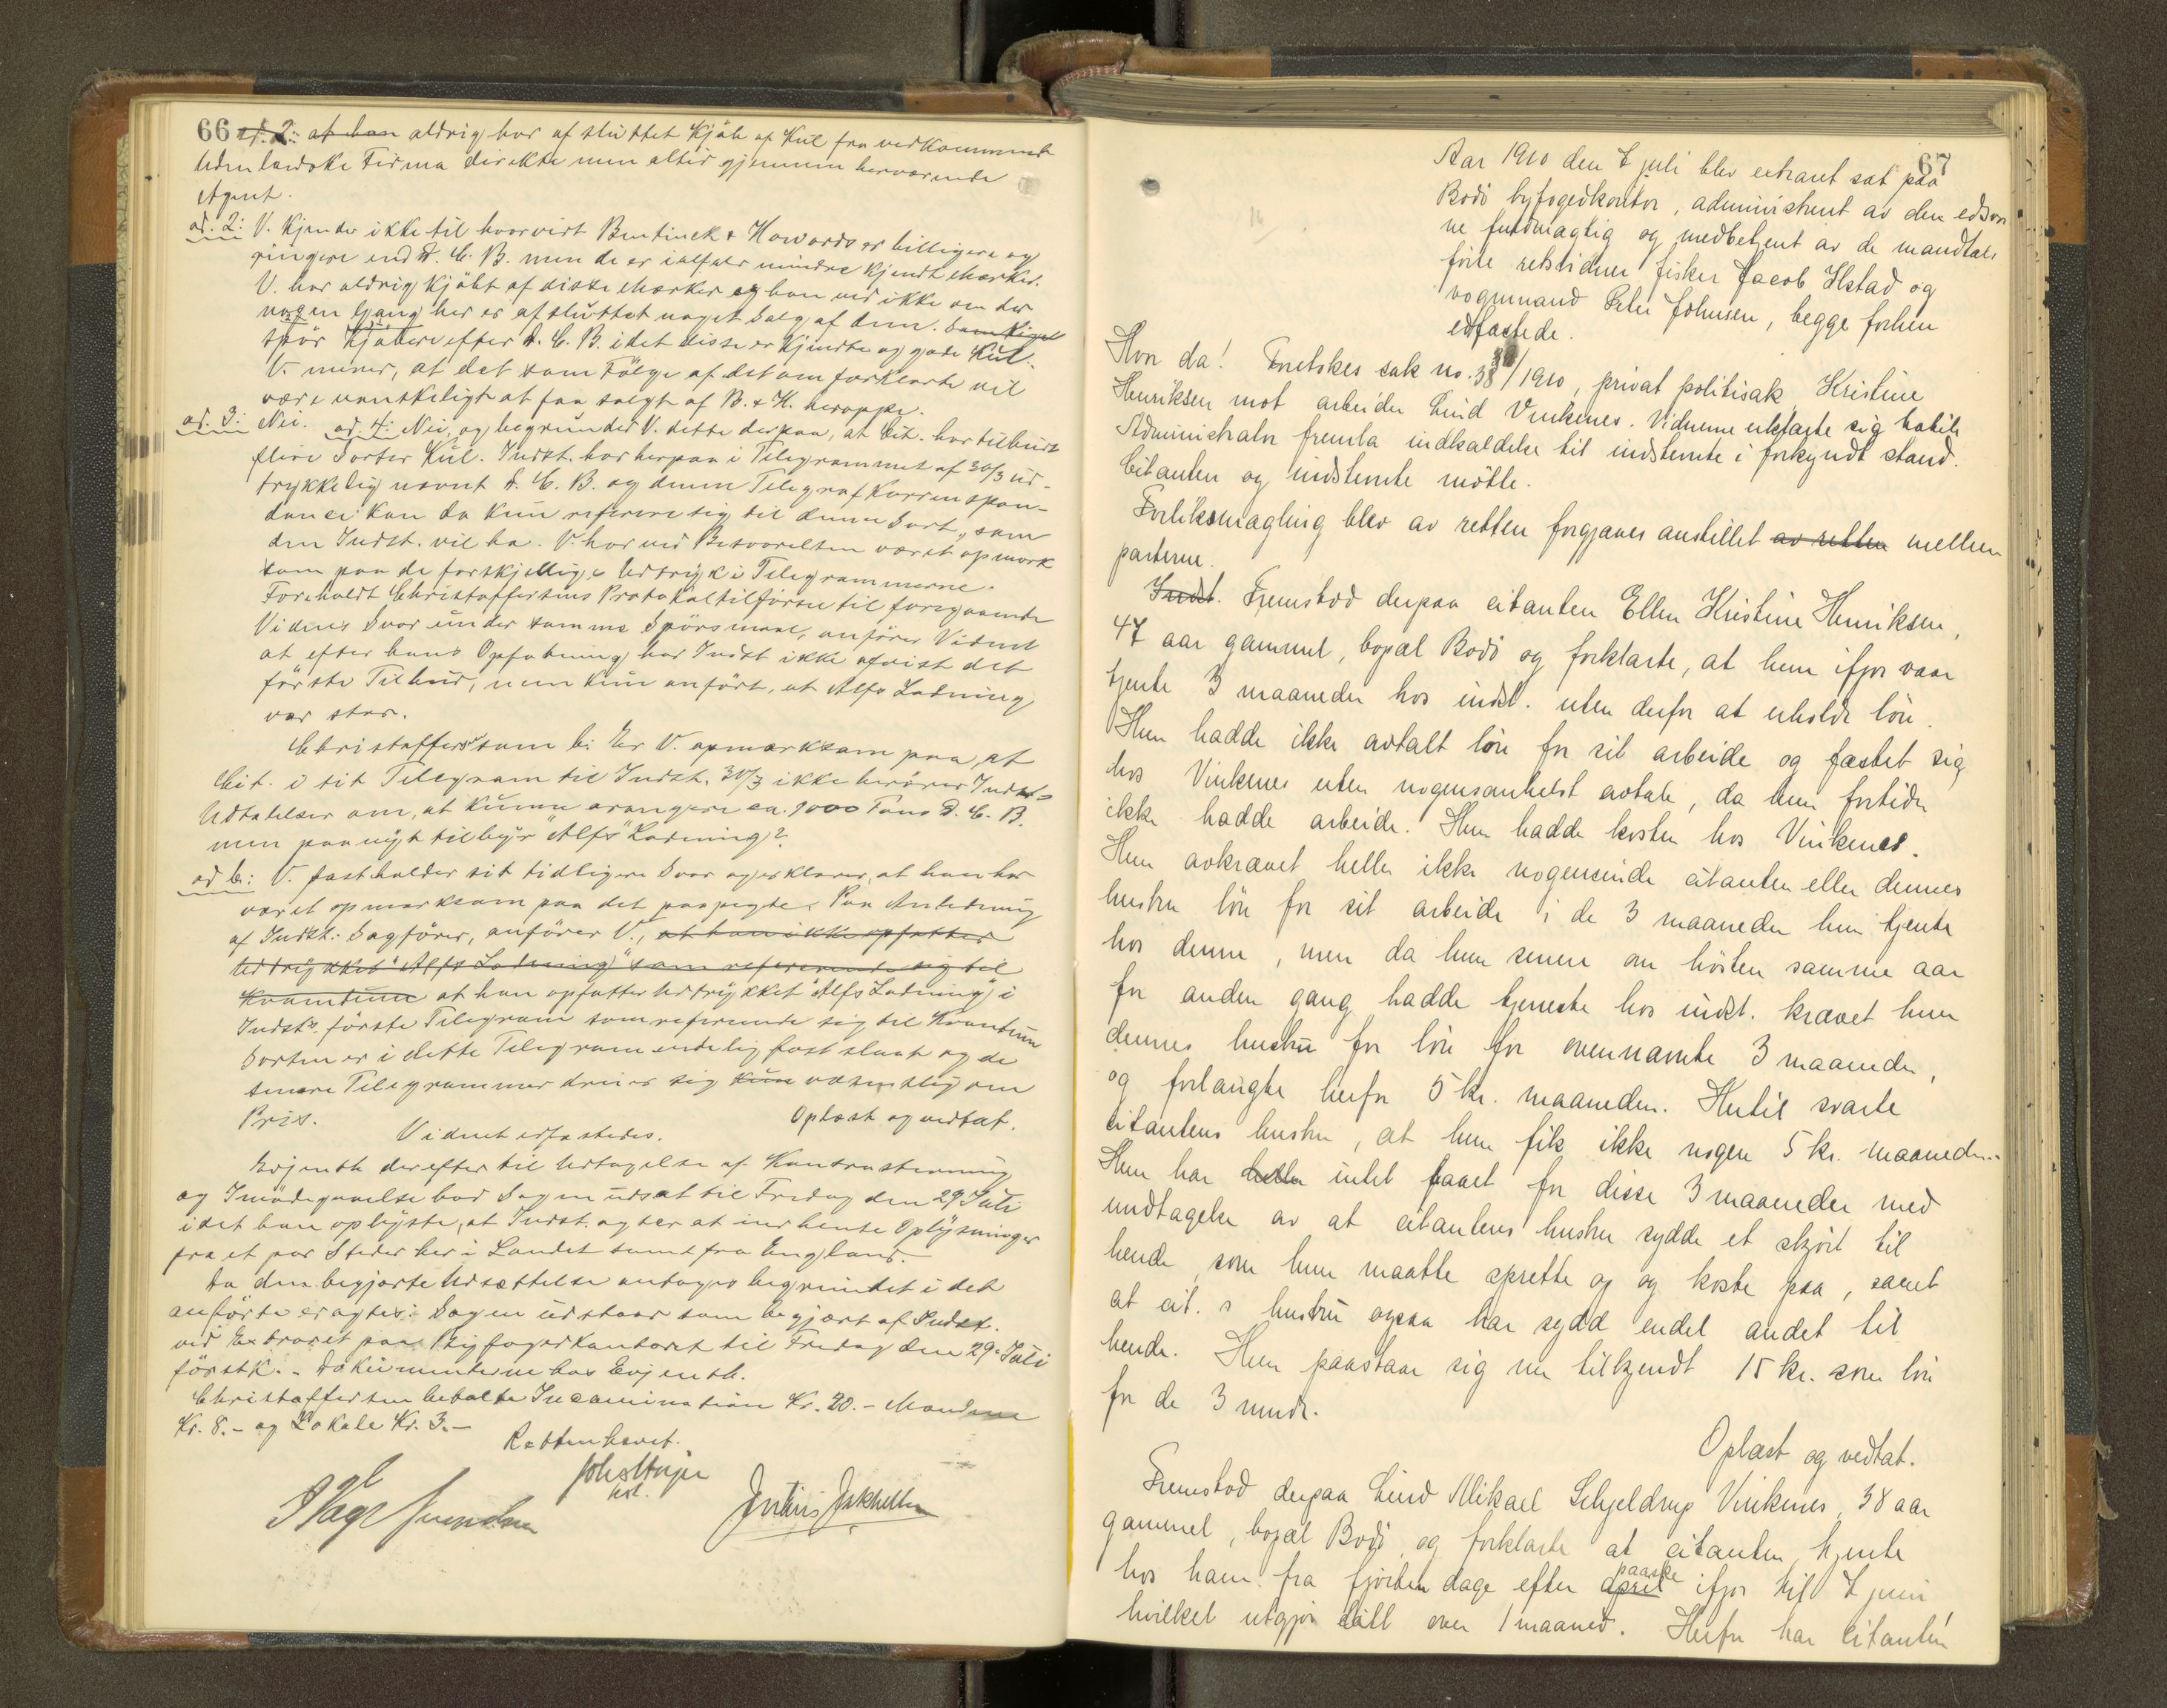 66 ad. 2: at han aldrig har afsluttet Kjöb af Kul fra vedkommende
Udenlandske Firma direkte men altid gjennem herværende
Agent.
ad. 2: V. kjender ikke til hvorvidt Bentinck & Howards er billigere og
ringere end D. C. B. men de er ialfald mindre kjendt Mærker.
V. har aldrig kjöbt af disse Mærker og han ved ikke om der
nogen Gang her er afsluttet noget Salg af dem. Som Regel
spör Kjöbere efter D. C. B. idet disse er kjendte og gode Kul.
V. mener, at det som Fölge af det om forklarte vil
være vanskeligt at faa solgt af B. & H. heroppe.
ad. 3: Nei. ad. 4: Nei, og begrunder V. dette derpaa, at Cit. har tilbudt
flere Sorter Kul. Indst. har herpaa i Telegrammet af 30/3 ud-
trykkelig nævnt D. C. B. og denne Telegrafkorrespon-
dance kan da kun referere sig til denne Sort, som
den Indst. vil ha. V. har ved Besvarelsen været opmærk
som paa de forskjellige Udtryk i Telegrammerne.
Foreholdt Christoffersens Protokoltilförsel til foregaaende
Vidnes Svar under samme Spörsmaal, anförer Vidnet
at efter hans Opfatning har Indst ikke afvist det
förste Tilbud, men kun anfört, at Alfs Ladning
var stor.
Christoffersen som b: Er V. opmærksom paa, at
Cit. i sit Telegram til Indst. 30/3 ikke berörer Indst=
Udtalelser om, at kunne arangere ca. 1000 Tons D. C. B.
men paanyt tilbyr "Alfs" Ladning?
ad b: V. fastholder sit tidligere Svar og erklærer, at han har
været opmærksom paa det paapegte. Paa Anledning
af Indst: Sagförer, anförer V., at han ikke opfatter
Udtrykket "Alfs Ladning" som refererende sig til
Kvantum at han opfatter Udtrykket "Alfs Ladning" i
Indsts förste Telegram som refererende sig til Kvantum
Sorten er i dette Telegram endelig fastslaat og de
senere Telegrammer dreier sig kun væsentlig om
Pris. Oplæst og vedtat.
Vidnet edfæstedes.
Evjenth derefter til Udtagelse af Kontrastevning
og Imödegaaelse bad Sagen udsat til Fredag den 29. Juli
idet han oplyste, at Indst. agter at indhente Oplysninger
fra et par Steder her i Landet samt fra England.
Da den begjærte Udsættelse antages begrundet i det
anförte eragtes: Sagen udstaar som begjært af Indst.
ved Extraret paa Byfogedkontoret til Fredag den 29. Juli
förstk. - Dokumenterne hos Evjenth.
Christoffersen betalte Incamination Kr. 20.- Mændene
Kr. 8.- og Lokale Kr. 3.-
Retten hævet.
67
Aar 1910 den 7 juli blev extraret sat paa
Bodö byfogedkontor, administrert av den edsvor
ne fuldmægtig og medbetjent av de mandtals
förte retsvidner fisker Jacob Ilstad og
vognmand Peter Johnsen, begge forhen
edfæstede.
Hvor da! Foretokes sak no. 38/1910, privat politisak Kristine
Henriksen mot arbeider Lind Vinkenes. Vidnerne erklærte sig habile
Administrator fremla indkaldelse til indstevnte i forkyndt stand.
Citanten og indstevnte mötte.
Forliksmægling blev av retten forgjæves anstillet av retten mellem
parterne.
Indst. Fremstod derpaa citanten Ellen Kristine Henriksen,
47 aar gammel, bopæl Bodö og forklarte, at hun ifjor vaar
tjente 3 maaneder hos indst. uten derfor at erholde lön.
Hun hadde ikke avtalt lön for sit arbeide og fæstet sig
hos Vinkenes uten nogensomhelst avtale, da hun fortiden
ikke hadde arbeide. Hun hadde kosten hos Vinkenes.
Hun avkrævet heller ikke nogensinde citanten eller dennes
hustru lön for sit arbeide i de 3 maaneder hun tjente
hos denne, men da hun senere om hösten samme aar
for anden gang hadde tjeneste hos indst. krævet hun
dennes hustru for lön for ovennævnte 3 maaneder,
og forlangte herfor 5 kr. maaneden. Hertil svarte
citantens hustru, at hun fik ikke nogen 5 kr. maaneden.
Hun har heller intet faaet for disse 3 maaneder med
undtagelse av at citantens hustru sydde et skjört til
hende som hun maatte sprette op og koste paa, samt
at cit. s hustru ogsaa har sydd endel andet til
hende. Hun paastaar sig nu tilkjendt 15 kr. som lön
for de 3 mndr.
Oplæst og vedtat.
Fremstod derpaa Lind Mikael Schjeldrup Vinkenes, 38 aar
gammel, bopæl Bodö og forklarte at citanten tjente
hos ham fra fjorten dage efter april paaske ifjor til 7 juni
hvilket utgjör litt over 1 maaned. Herfor har citanten